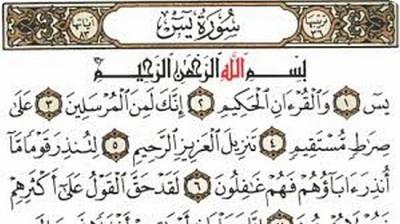 ترتيبها ٣٦ سورة يس آياتها ٨٣
بسم الله الرحمن الرحيم
يسٓ ١ وَٱلْقُرْءَانِ ٱلْحَكِيمِ ٢ إِنَّكَ لَمِنَ ٱلْمُرْسَلِينَ ٣ عَلَىٰ
صِرَٰطٍ مُّسْتَقِيمٍ ٤ تَنزِيلَ ٱلْعَزِيزِ ٱلرَّحِيمِ ٥ لِتُنذِرَ قَوْمًا مَّآ
أُنذِرَ ءَابَآؤُهُمْ فَهُمْ غَٰفِلُونَ ٦ لَقَدْ حَقَّ ٱلْقَوْلُ عَلَىٰٓ أَكْثَرِهِمْ